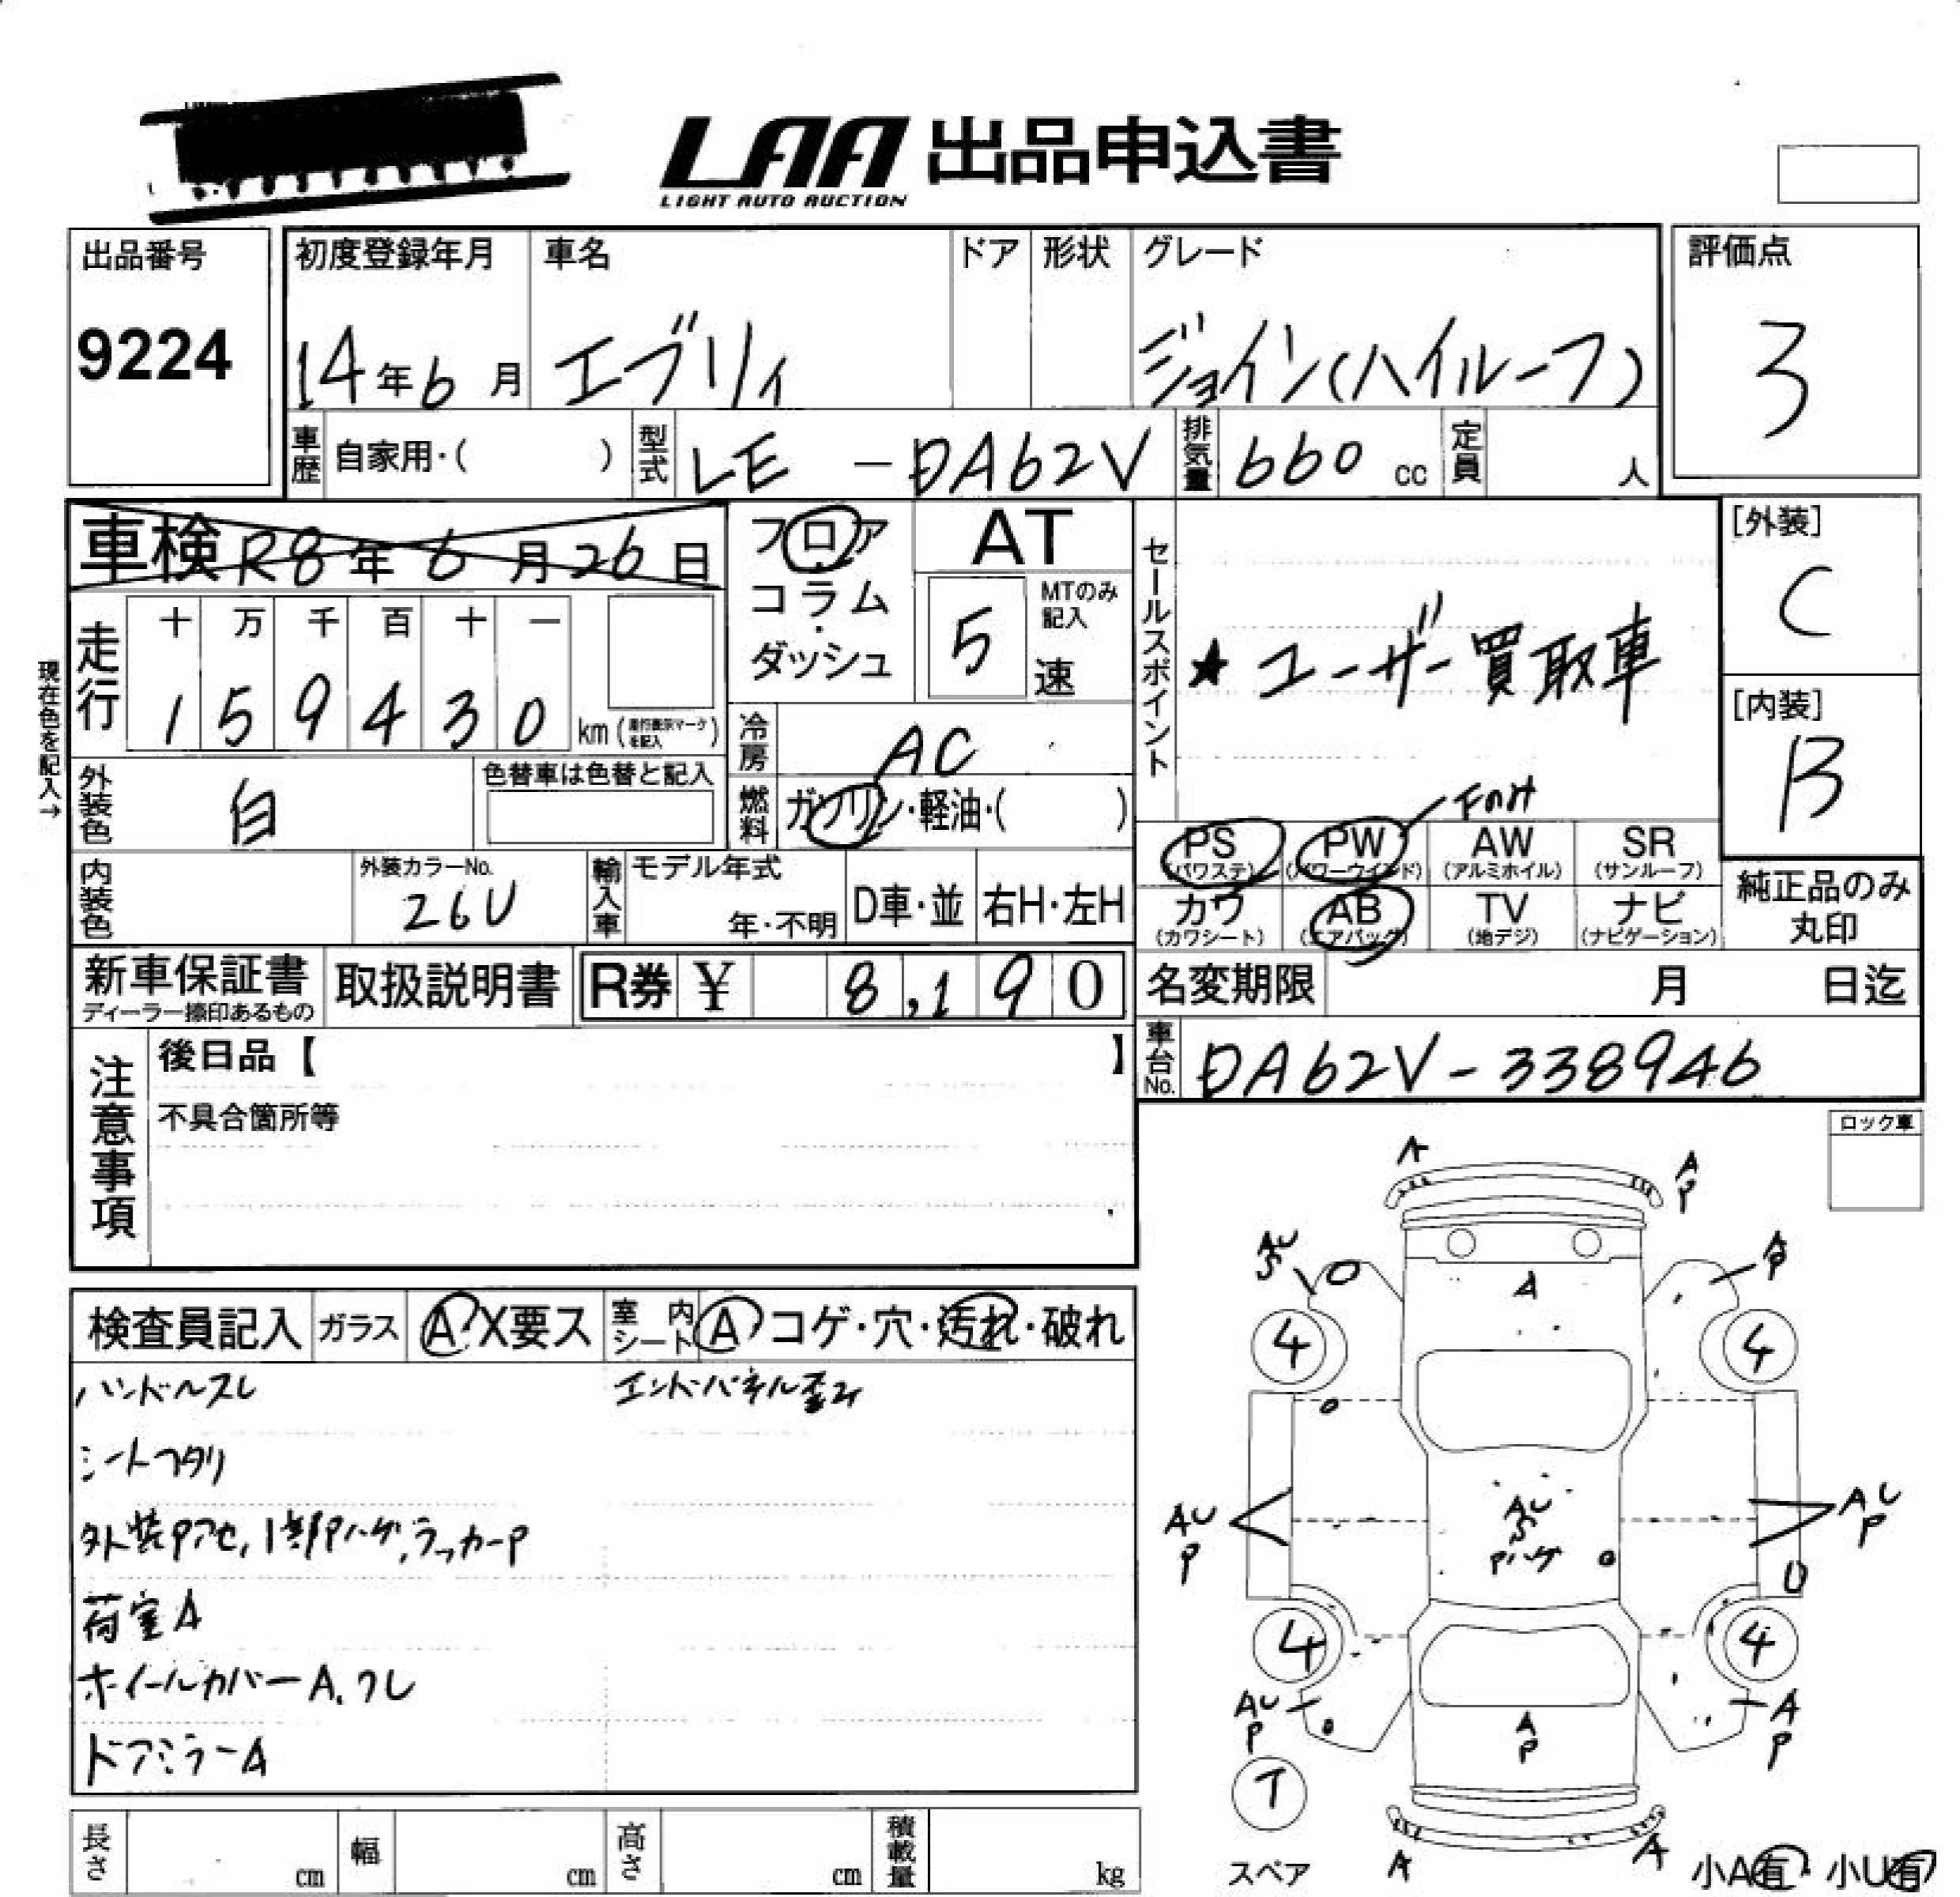 LAA 出品申込書
LIGHT AUTO AUCTION
出品番号
9224
初度登録年月
14年6月
車名
エブリィ
ドア
形状
グレード
ジョイン(ハイルーフ)
評価点
3
車歴 自家用・( )
型式 LE - DA62V
排気量 660 cc
定員 人
車検 R8年6月26日
フロア
コラム
・
ダッシュ
AT
5
MTのみ記入
速
セールスポイント
★ユーザー買取車
[外装]
C
[内装]
B
現在色を記入→
走行
十 万 千 百 十 一
1 5 9 4 3 0 km(走行表示マークを記入)
冷房 AC
燃料 ガソリン・軽油・( )
外装色 白
色替車は色替と記入
内装色
外装カラーNo.
26U
輸入車
モデル年式
年・不明
D車・並
右H・左H
Fのみ
PS (パワステ)
PW (パワーウインド)
AW (アルミホイル)
SR (サンルーフ)
カワ (カワシート)
AB (エアバッグ)
TV (地デジ)
ナビ (ナビゲーション)
純正品のみ
丸印
新車保証書
ディーラー捺印あるもの
取扱説明書
R券 ¥ 8,190
名変期限 月 日迄
車台No. DA62V-338946
注意事項
後日品【 】
不具合箇所等
ロック車
検査員記入
ガラス
A X要ス
室内シート
A コゲ・穴・汚れ・破れ
ハンドルスレ
エンドパネル歪み
シートヘタリ
外装Pアセ,1部Pハゲ,ラッカーP
荷室A
ホイールカバーA,ワレ
ドアミラーA
A
A
P
AU
S
A
P
A
4
4
AU
P
AU
S
Pハゲ
AU
P
U
4
4
AU
P
A
P
A
P
T
スペア
A
A
小A有・小U有
長さ cm
幅 cm
高さ cm
積載量 kg